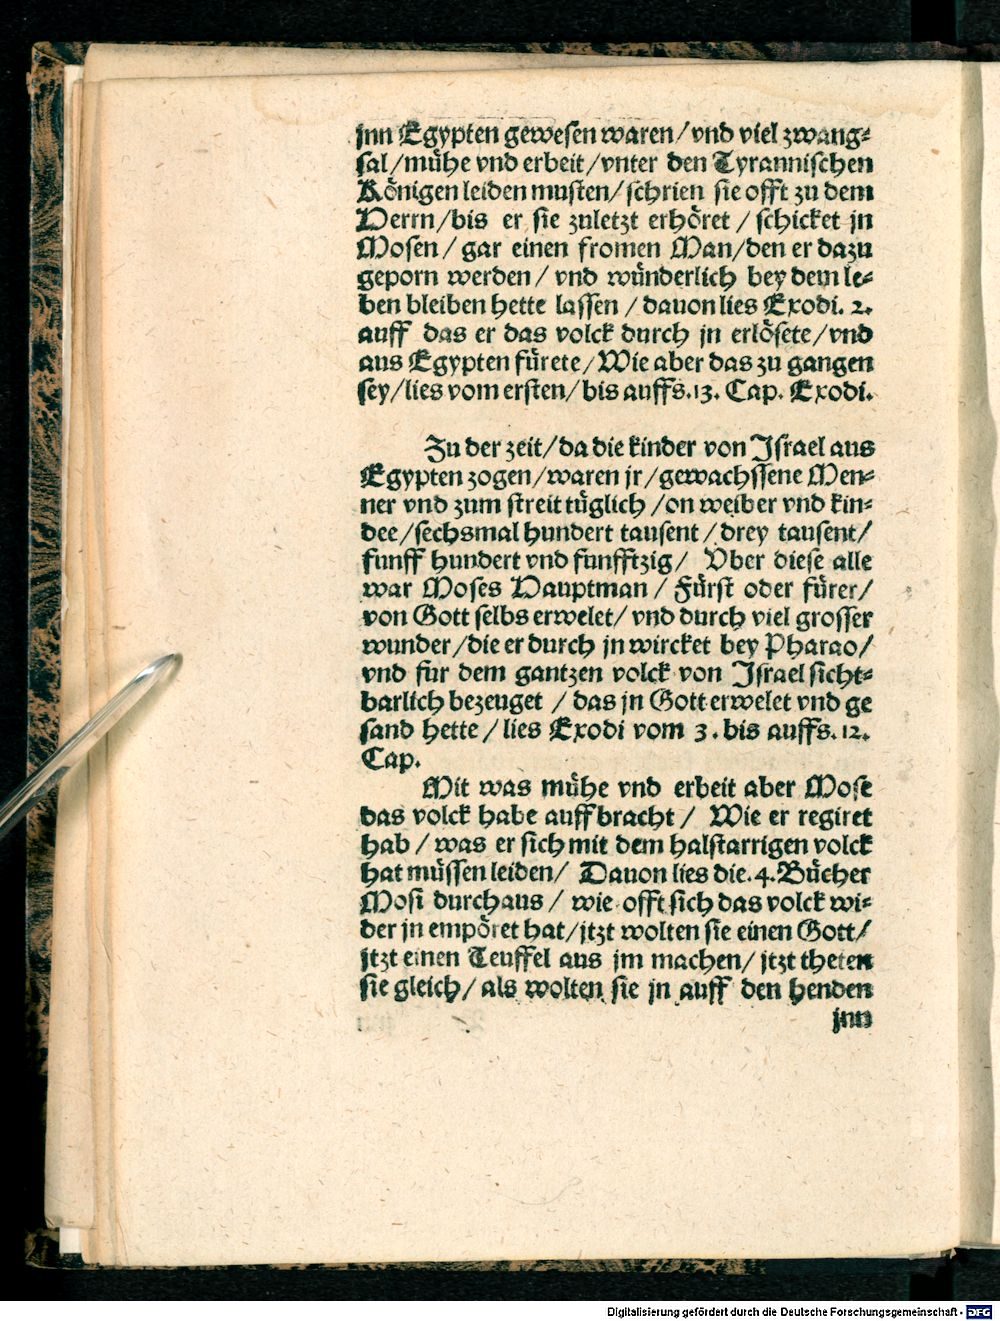 jnn Egypten gewesen waren/vnd viel zwang-
sal/mühe vnd erbeit/vnter den Tyrannischen
Königen leiden musten/schrien sie offt zu dem
Herrn/bis er sie zuletzt erhöret/schicket jn
Mosen/gar einen fromen Man/den er dazu
geporn werden/vnd wünderlich bey dem le-
ben bleiben hette lassen/dauon lies Exodi. 2.
auff das er das volck durch jn erlösete/vnd
aus Egypten fürete/Wie aber das zu gangen
sey/lies vom ersten/bis auffs.13. Cap. Exodi.
Zu der zeit/da die kinder von Israel aus
Egypten zogen/waren jr/gewachssene Men-
ner vnd zum streit tüglich/on weiber vnd kin-
dee/sechsmal hundert tausent/drey tausent/
funff hundert vnd funfftzig/ Vber diese alle
war Moses Hauptman/Fürst oder fürer/
von Gott selbs erwelet/vnd durch viel grosser
wunder/die er durch jn wircket bey Pharao/
vnd für dem gantzen volck von Israel sicht-
barlich bezeuget/das jn Gott erwelet vnd ge
sand hette/lies Exodi vom 3. bis auffs. 12.
Cap.
Mit was mühe vnd erbeit aber Mose
das volck habe auffbracht/ Wie er regiret
hab/was er sich mit dem halstarrigen volck
hat müssen leiden/ Dauon lies die.4.Bücher
Mosi durchaus/wie offt sich das volck wi-
der jn empöret hat/jtzt wolten sie einen Gott/
jtzt einen Teuffel aus jm machen/jtzt theten
sie gleich/als wolten sie jn auff den henden
jnn
Digitalisierung gefördert durch die Deutsche Forschungsgemeinschaft - DFG